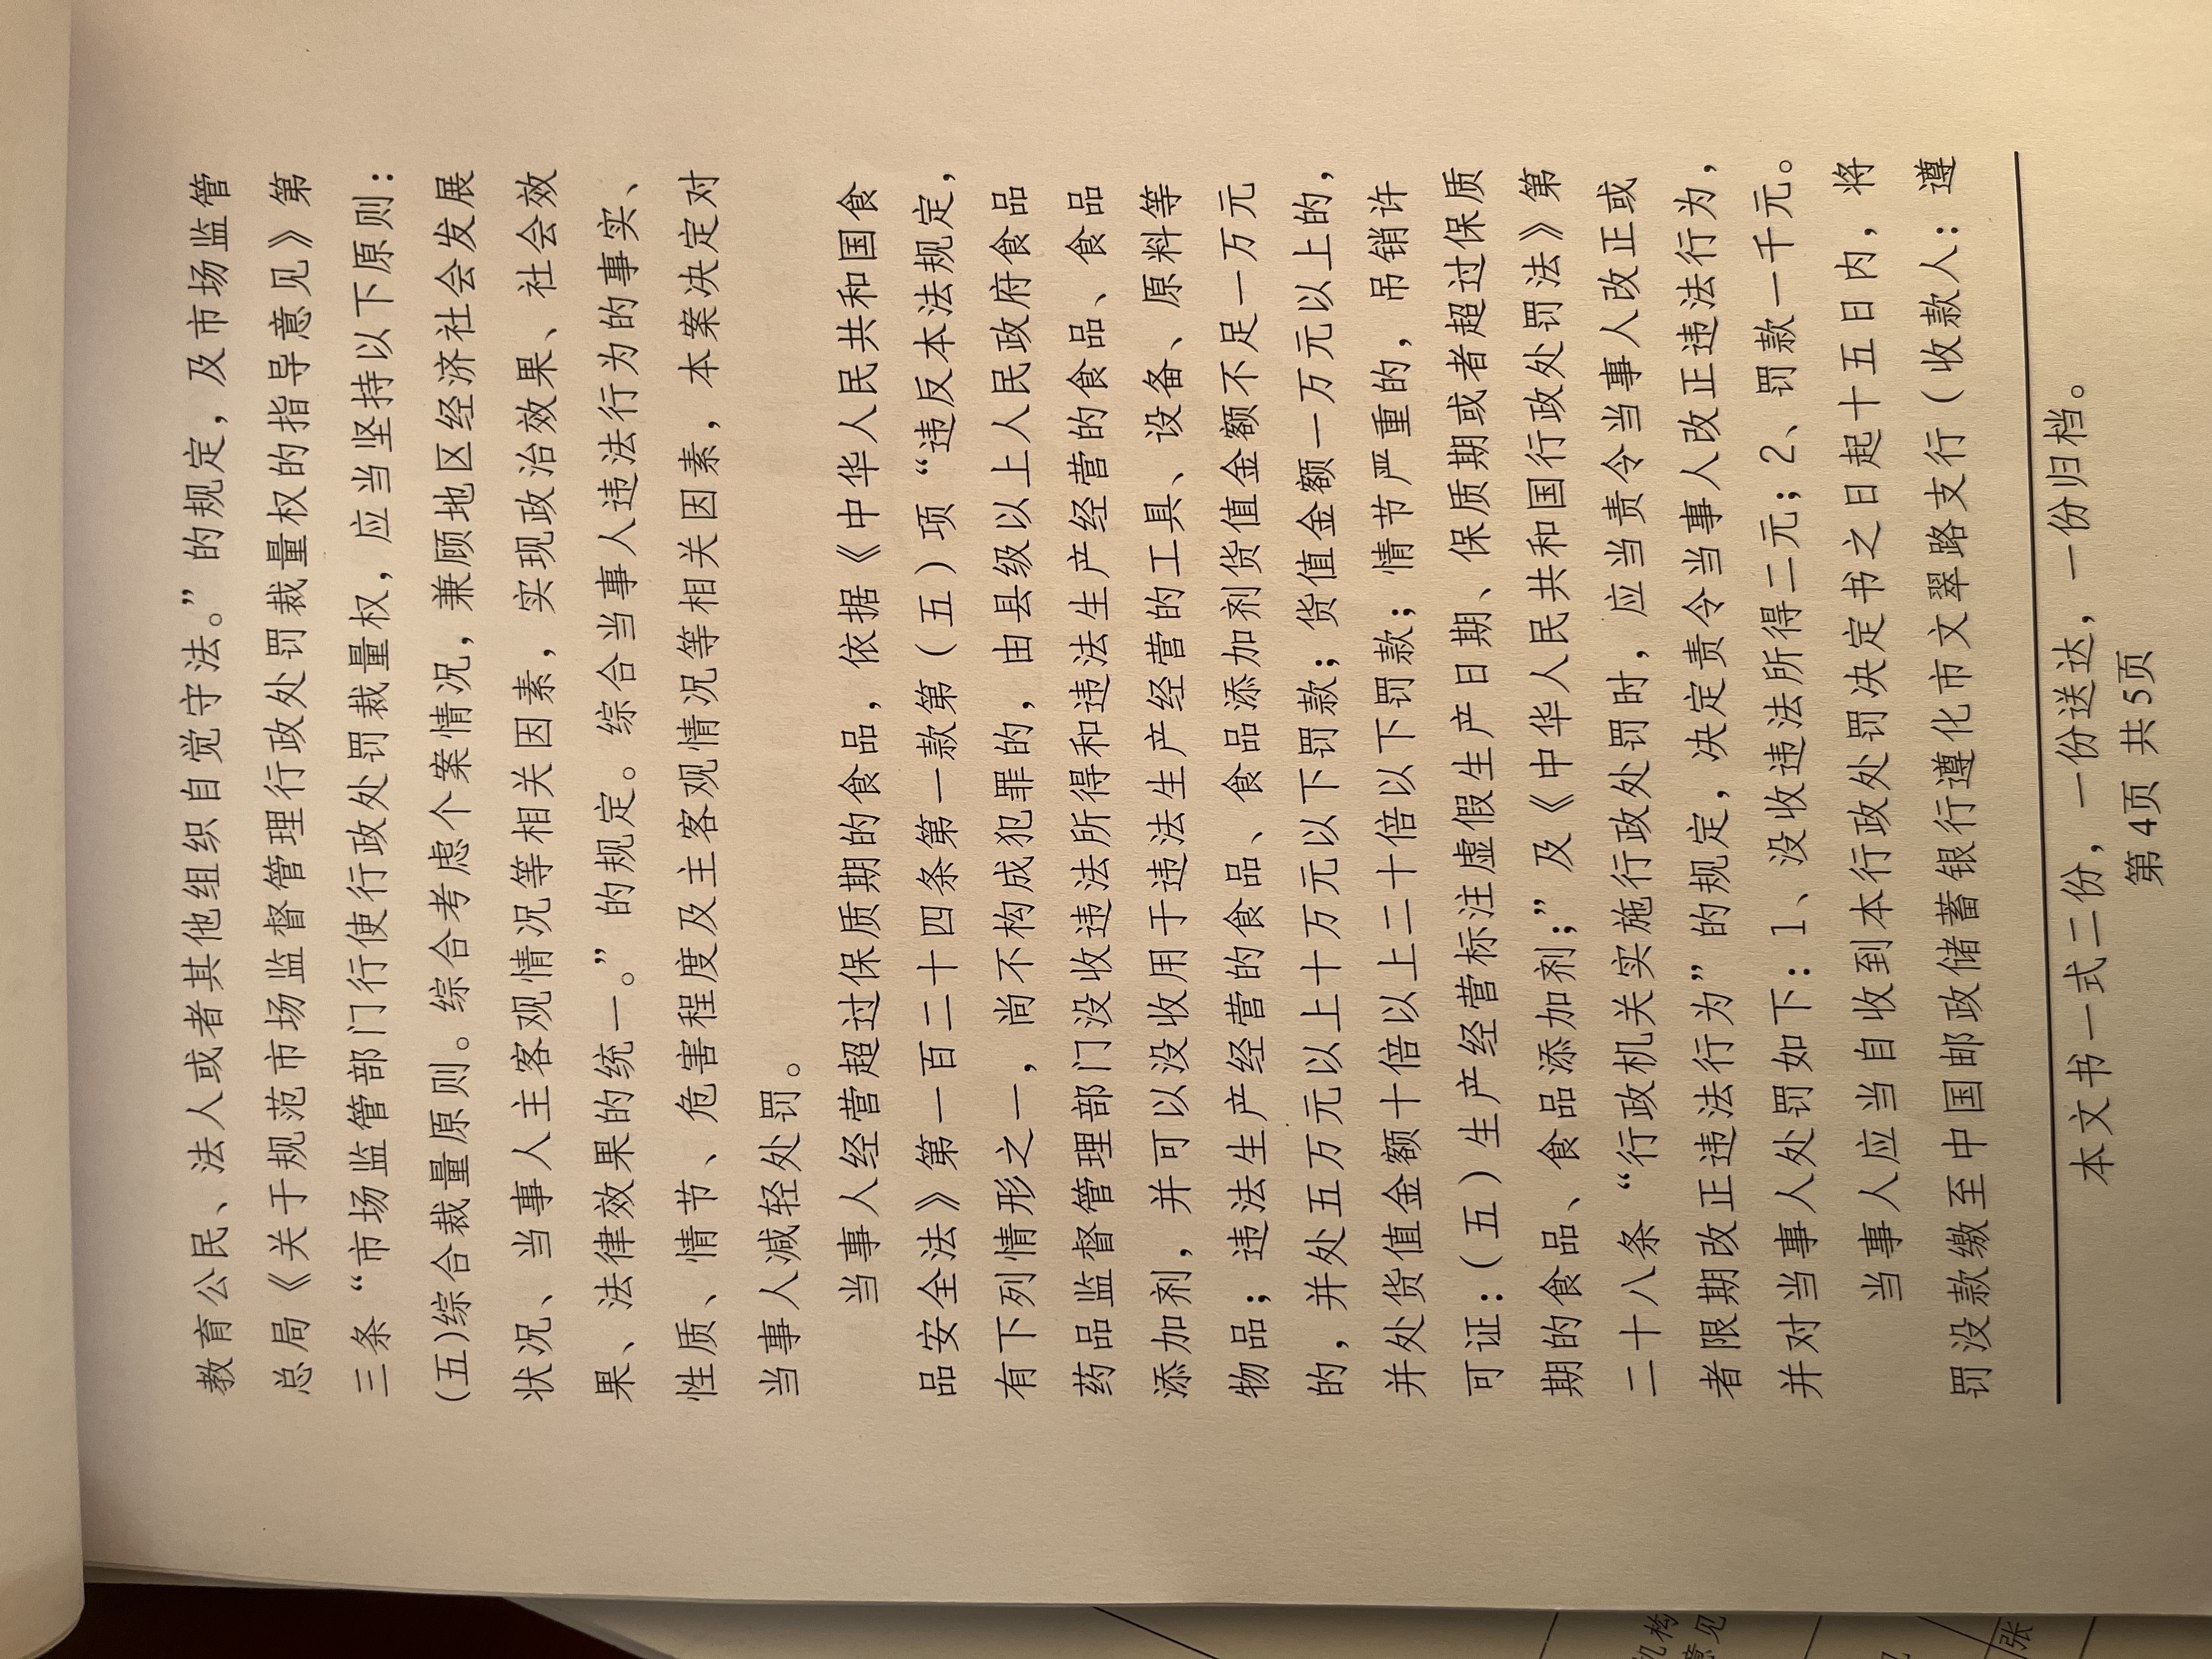 教育公民、法人或者其他组织自觉守法。”的规定，及市场监管
总局《关于规范市场监督管理行政处罚裁量权的指导意见》第
三条“市场监管部门行使行政处罚裁量权，应当坚持以下原则：
(五)综合裁量原则。综合考虑个案情况，兼顾地区经济社会发展
状况、当事人主客观情况等相关因素，实现政治效果、社会效
果、法律效果的统一。”的规定。综合当事人违法行为的事实、
性质、情节、危害程度及主客观情况等相关因素，本案决定对
当事人减轻处罚。
当事人经营超过保质期的食品，依据《中华人民共和国食
品安全法》第一百二十四条第一款第（五）项“违反本法规定，
有下列情形之一，尚不构成犯罪的，由县级以上人民政府食品
药品监督管理部门没收违法所得和违法生产经营的食品、食品
添加剂，并可以没收用于违法生产经营的工具、设备、原料等
物品；违法生产经营的食品、食品添加剂货值金额不足一万元
的，并处五万元以上十万元以下罚款；货值金额一万元以上的，
并处货值金额十倍以上二十倍以下罚款；情节严重的，吊销许
可证：（五）生产经营标注虚假生产日期、保质期或者超过保质
期的食品、食品添加剂；”及《中华人民共和国行政处罚法》第
二十八条“行政机关实施行政处罚时，应当责令当事人改正或
者限期改正违法行为”的规定，决定责令当事人改正违法行为，
并对当事人处罚如下：1、没收违法所得二元；2、罚款一千元。
当事人应当自收到本行政处罚决定书之日起十五日内，将
罚没款缴至中国邮政储蓄银行遵化市文翠路支行（收款人：遵
本文书一式二份，一份送达，一份归档。
第4页 共5页
机构
意见
张